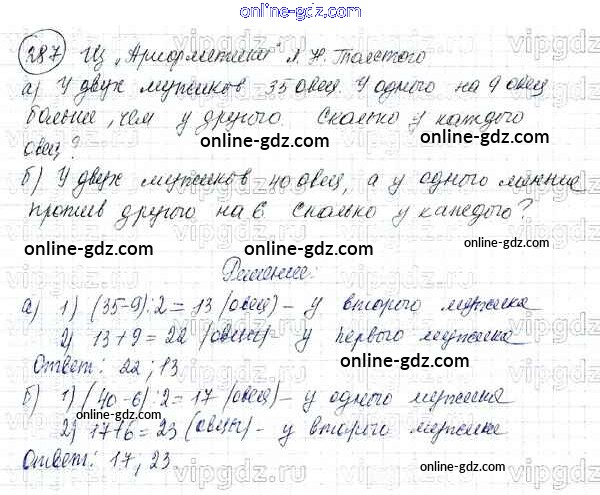 online-gdz.com
287 Из "Арифметики" Л. Н. Толстого
online-gdz.com
а) У двух мужиков 35 овец. У одного на 9 овец
больше, чем у другого. Сколько у каждого
online-gdz.com
овец?
б) У двух мужиков 40 овец, а у одного меньше
против другого на 6. Сколько у каждого?
online-gdz.com
online-gdz.com
Решение:
online-gdz.com
а) 1) (35-9):2=13 (овец) – у второго мужика
2) 13+9=22 (овцы) – у первого мужика
online-gdz.com
Ответ: 22; 13
б) 1) (40-6):2=17 (овец) – у одного мужика
online-gdz.com
2) 17+6=23 (овцы) – у второго мужика
Ответ: 17; 23
online-gdz.com
vipgdz.ru